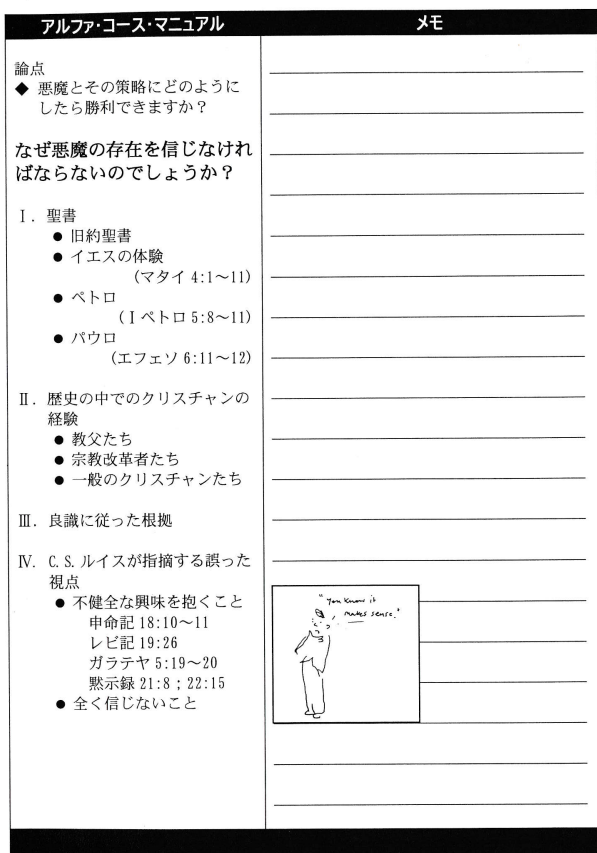 アルファ・コース・マニュアル
メモ
論点
◆ 悪魔とその策略にどのように
したら勝利できますか？
なぜ悪魔の存在を信じなけれ
ばならないのでしょうか？
Ⅰ. 聖書
● 旧約聖書
● イエスの体験
(マタイ 4:1～11)
● ペトロ
(Ⅰペトロ 5:8～11)
● パウロ
(エフェソ 6:11～12)
Ⅱ. 歴史の中でのクリスチャンの
経験
● 教父たち
● 宗教改革者たち
● 一般のクリスチャンたち
Ⅲ. 良識に従った根拠
Ⅳ. C.S.ルイスが指摘する誤った
視点
● 不健全な興味を抱くこと
申命記 18:10～11
レビ記 19:26
ガラテヤ 5:19～20
黙示録 21:8 ; 22:15
● 全く信じないこと
"You know it
makes sense."